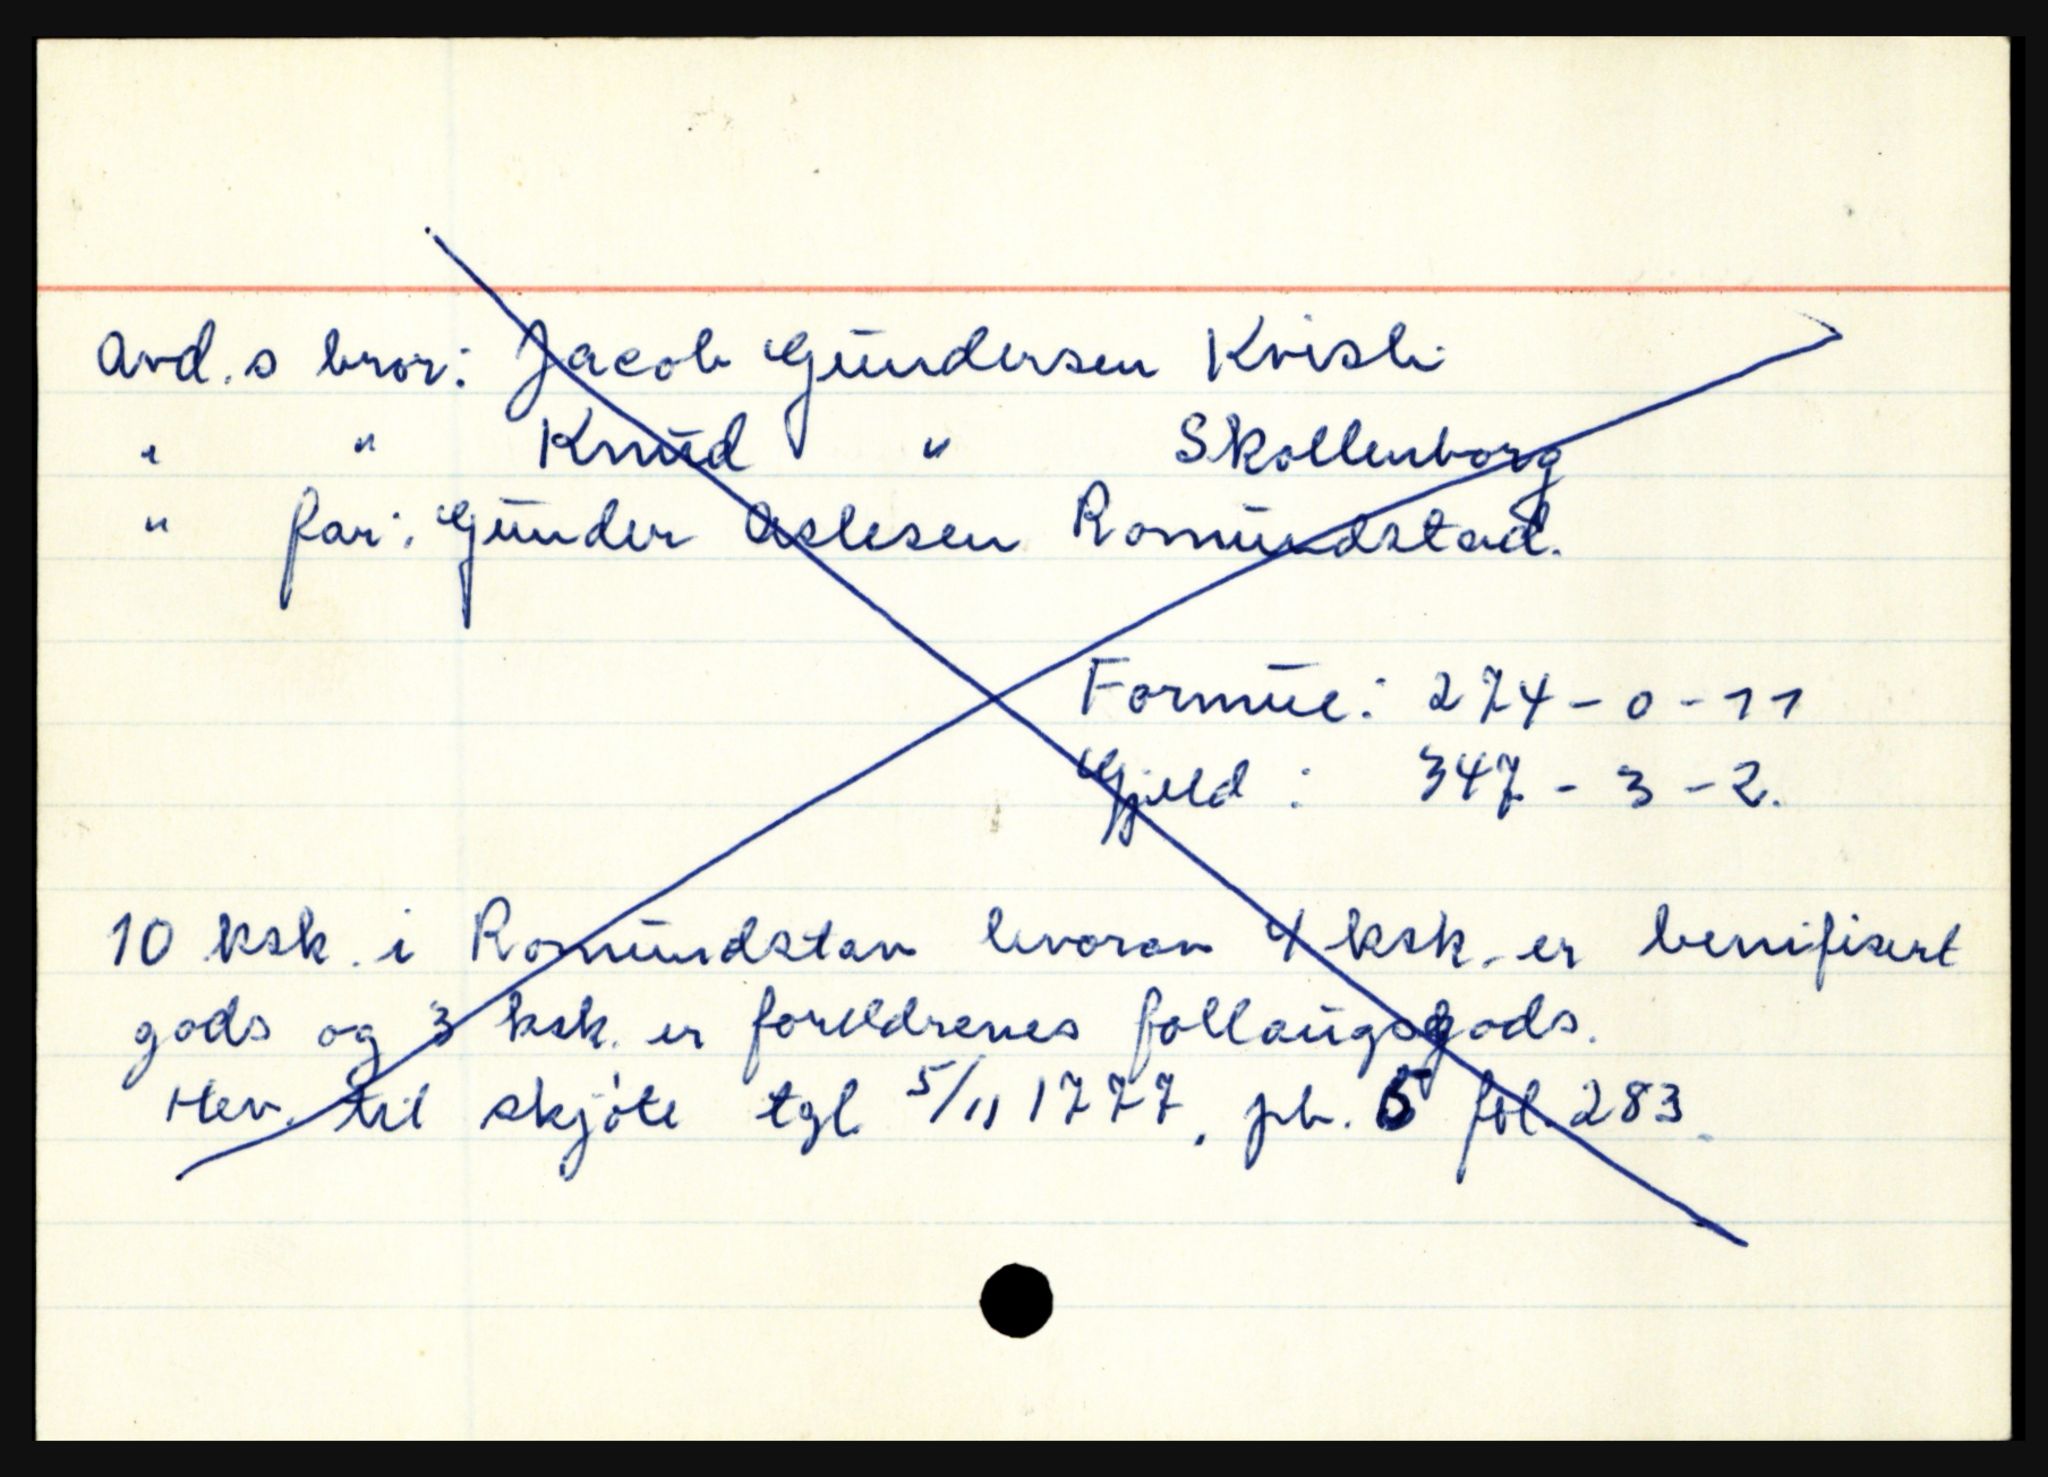 Avd.s bror: Jacob Gundersen Kvisli
" " Knud " Skollenborg
" far: Gunder Aslesen Romundstad.
Formue: 274-0-11
Gjeld: 347-3-2.
10 ksk. i Romundstav hvorav 4 ksk. er benifisert
gods og 3 ksk. er foreldrenes follaugsgods.
Hev. til skjöte tgl. 5/11 1777, pb. 5 fol. 283.